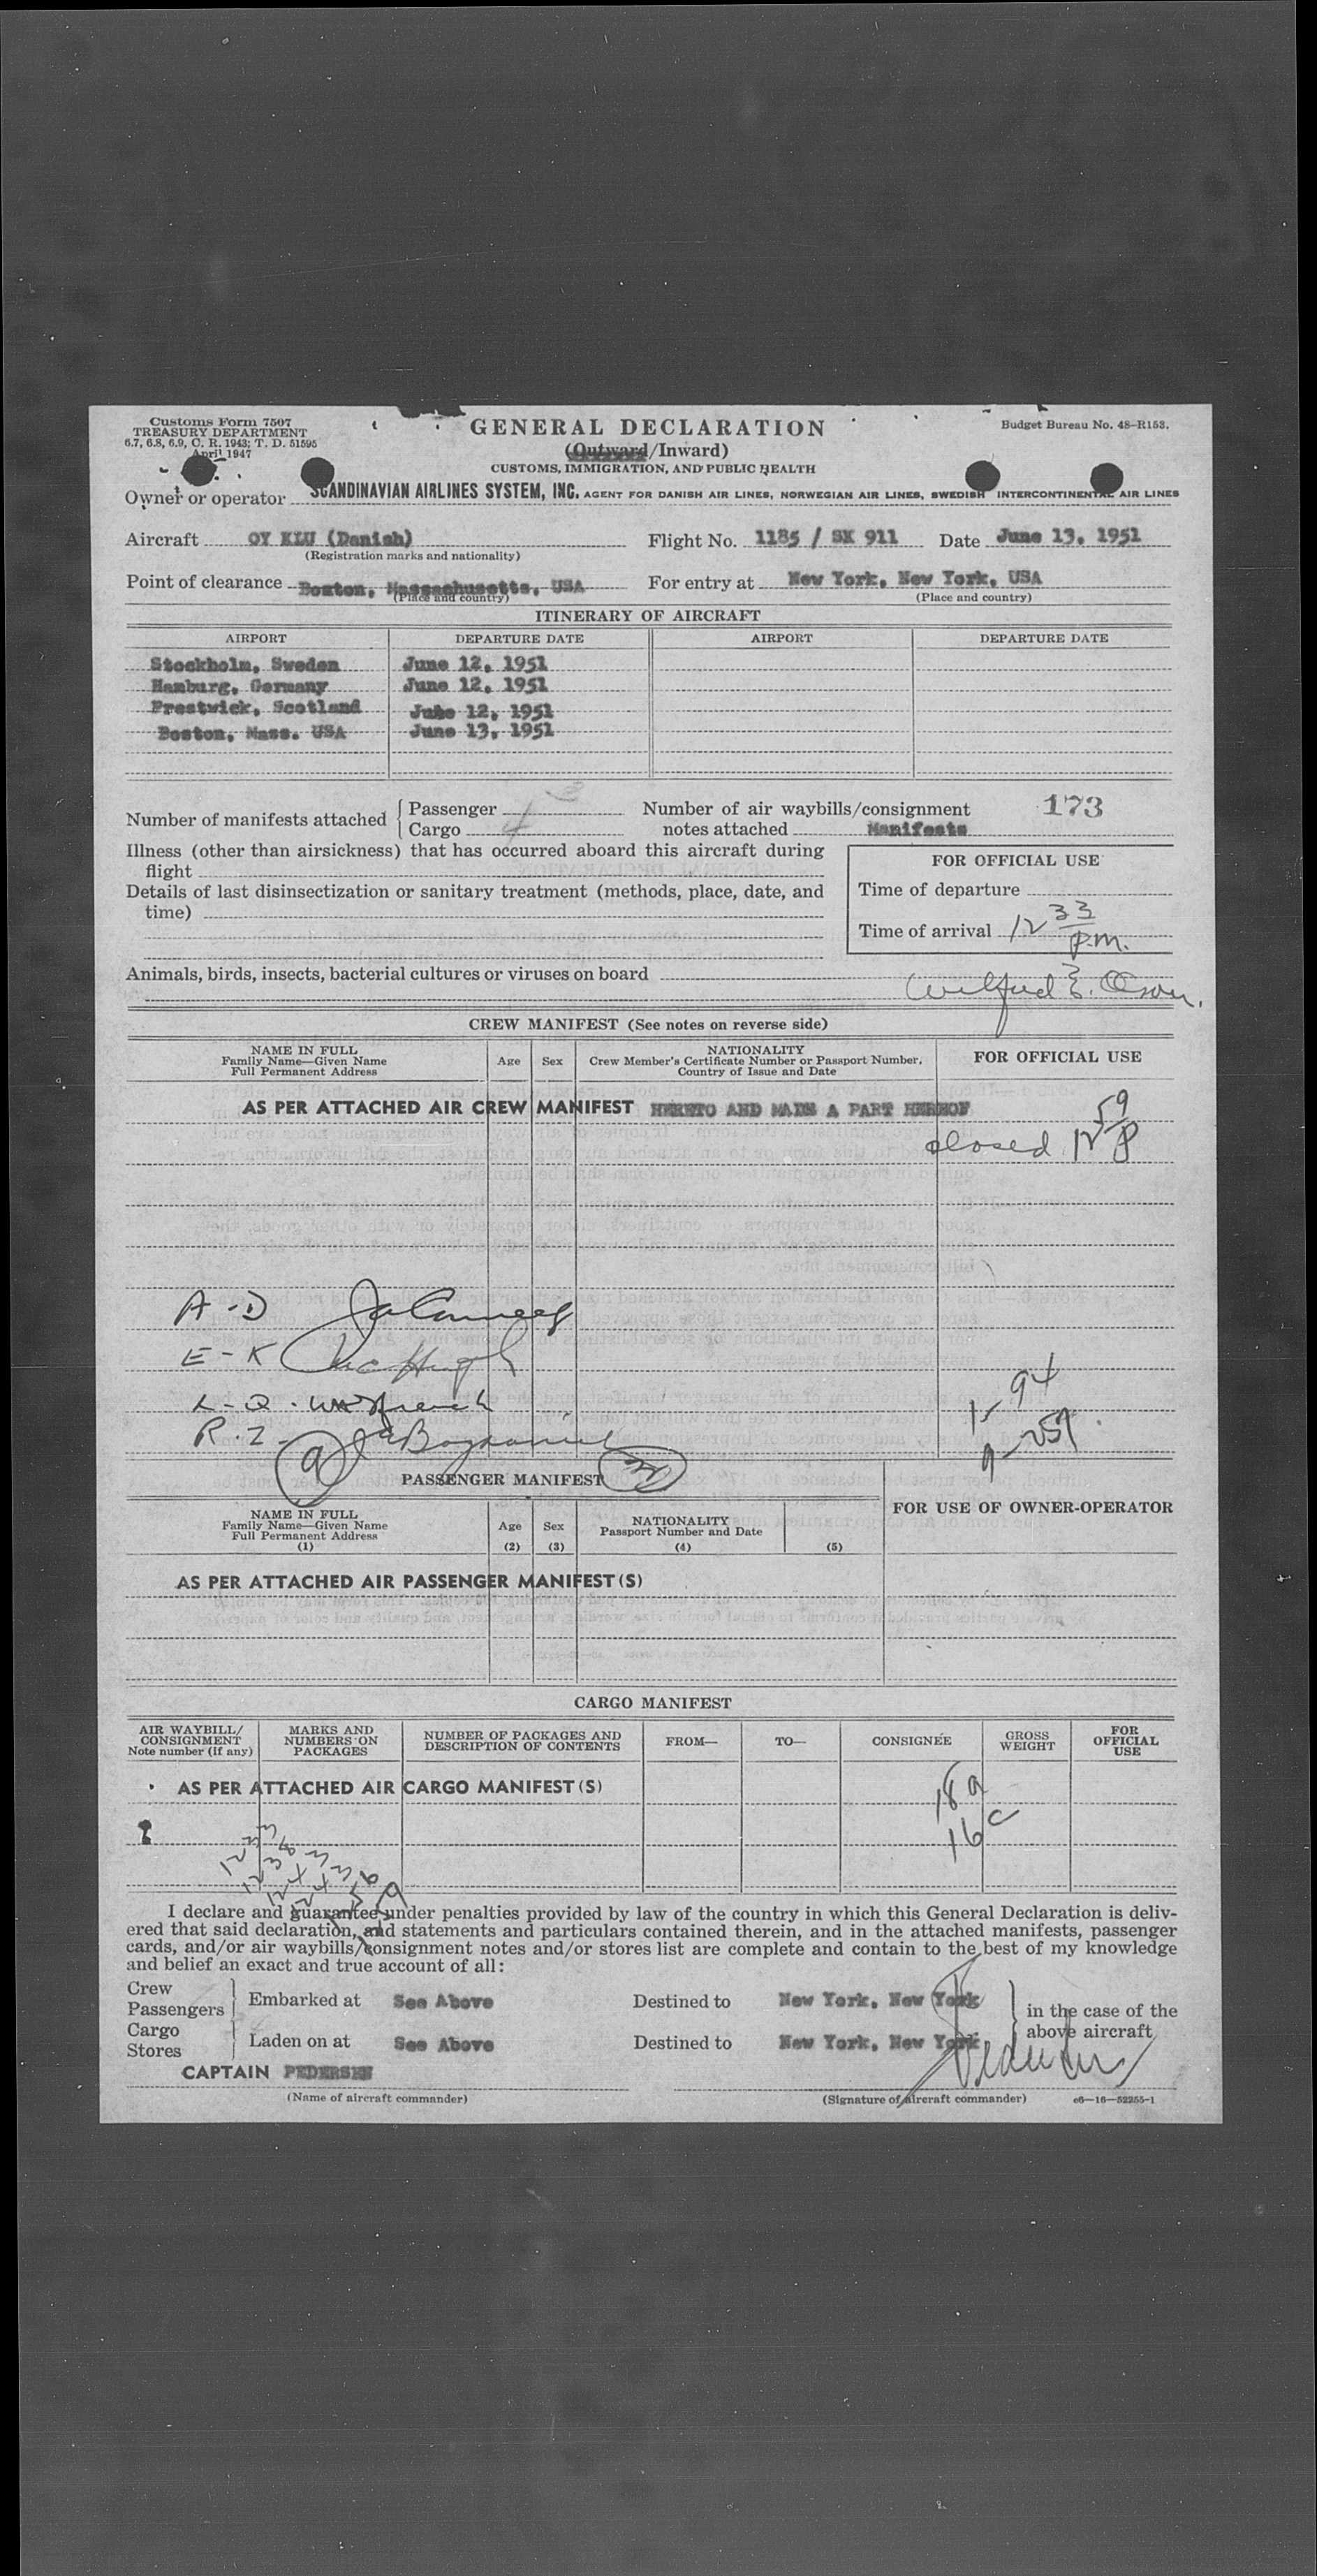 Customs Form 7507
TREASURY DEPARTMENT
6.7, 6.8, 6.9, C. R. 1943; T. D. 51595
April 1947
GENERAL DECLARATION
(Outward/Inward)
CUSTOMS, IMMIGRATION, AND PUBLIC HEALTH
Budget Bureau No. 48-R153.
Owner or operator SCANDINAVIAN AIRLINES SYSTEM, INC. AGENT FOR DANISH AIR LINES, NORWEGIAN AIR LINES, SWEDISH INTERCONTINENTAL AIR LINES
Aircraft OY KLU (Danish) Flight No. 1185 / SK 911 Date June 13, 1951
(Registration marks and nationality)
Point of clearance Boston, Massachusetts, USA For entry at New York, New York, USA
(Place and country) (Place and country)
ITINERARY OF AIRCRAFT
AIRPORT DEPARTURE DATE AIRPORT DEPARTURE DATE
Stockholm, Sweden June 12, 1951
Hamburg, Germany June 12, 1951
Prestwick, Scotland June 12, 1951
Boston, Mass. USA June 13, 1951
Number of manifests attached { Passenger 3
Cargo 4
Number of air waybills/consignment 173
notes attached Manifests
Illness (other than airsickness) that has occurred aboard this aircraft during
flight
Details of last disinsectization or sanitary treatment (methods, place, date, and
time)
FOR OFFICIAL USE
Time of departure
Time of arrival 12 33
P.M.
Animals, birds, insects, bacterial cultures or viruses on board
Wilfred E.
CREW MANIFEST (See notes on reverse side)
NAME IN FULL
Family Name—Given Name
Full Permanent Address
Age
Sex
NATIONALITY
Crew Member's Certificate Number or Passport Number,
Country of Issue and Date
FOR OFFICIAL USE
AS PER ATTACHED AIR CREW MANIFEST HERETO AND MADE A PART HEREOF
closed 12 59 P
A-D
E-K
L-Q
R.Z-
1-94
9-257
PASSENGER MANIFEST
NAME IN FULL
Family Name—Given Name
Full Permanent Address
(1)
Age
(2)
Sex
(3)
NATIONALITY
Passport Number and Date
(4)
(5)
FOR USE OF OWNER-OPERATOR
AS PER ATTACHED AIR PASSENGER MANIFEST(S)
CARGO MANIFEST
AIR WAYBILL/
CONSIGNMENT
Note number (if any)
MARKS AND
NUMBERS ON
PACKAGES
NUMBER OF PACKAGES AND
DESCRIPTION OF CONTENTS
FROM—
TO—
CONSIGNEE
GROSS
WEIGHT
FOR
OFFICIAL
USE
AS PER ATTACHED AIR CARGO MANIFEST(S)
18a
16c
1233
1238
1243
1243
I declare and guarantee under penalties provided by law of the country in which this General Declaration is deliv-
ered that said declaration, and statements and particulars contained therein, and in the attached manifests, passenger
cards, and/or air waybills/consignment notes and/or stores list are complete and contain to the best of my knowledge
and belief an exact and true account of all:
Crew
Passengers } Embarked at See Above Destined to New York, New York
Cargo
Stores } Laden on at See Above Destined to New York, New York
} in the case of the
above aircraft
CAPTAIN PEDERSEN
(Name of aircraft commander) (Signature of aircraft commander) c6—16—52255-1